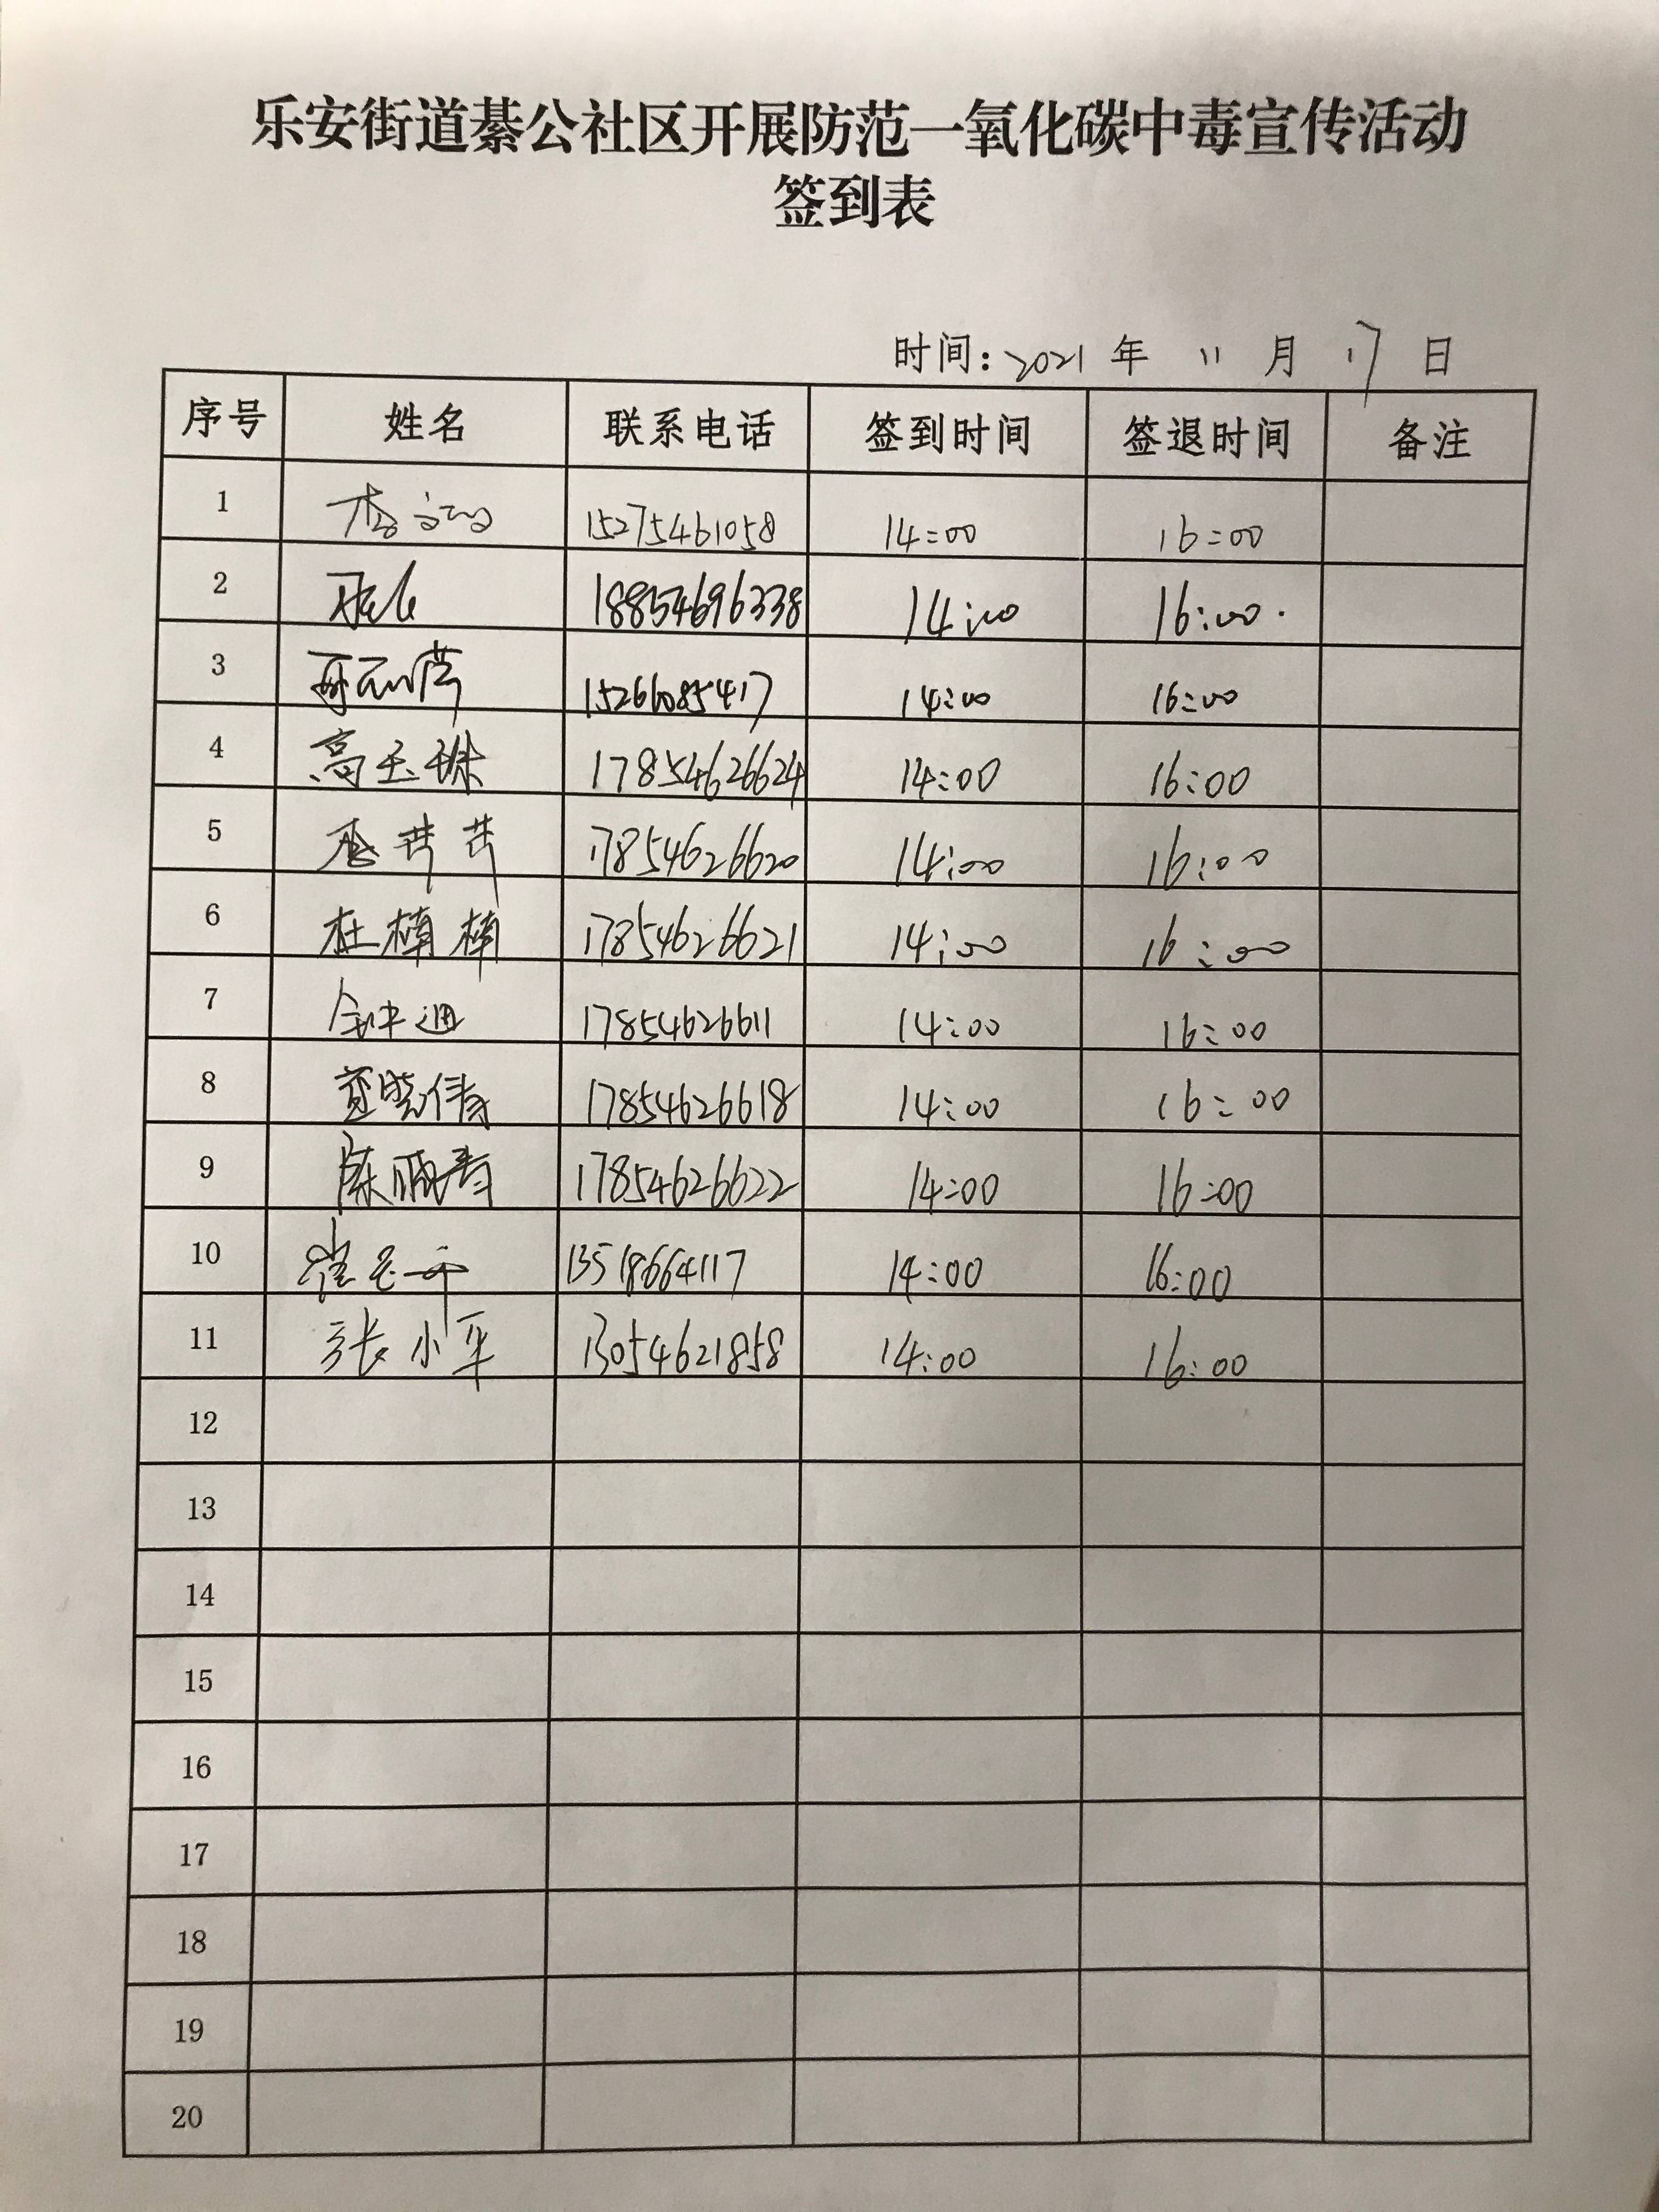 乐安街道綦公社区开展防范一氧化碳中毒宣传活动
签到表
时间：2021 年 11 月 17 日
序号 姓名 联系电话 签到时间 签退时间 备注
1 15275461058 14:00 16:00
2 18854696338 14:00 16:00.
3 15266085417 14:00 16:00
4 高玉珠 17854626624 14:00 16:00
5 17854626620 14:00 16:00
6 杜楠楠 17854626621 14:00 16:00
7 17854626611 14:00 16:00
8 17854626618 14:00 16:00
9 17854626622 14:00 16:00
10 13518664117 14:00 16:00
11 张小平 13054621858 14:00 16:00
12
13
14
15
16
17
18
19
20